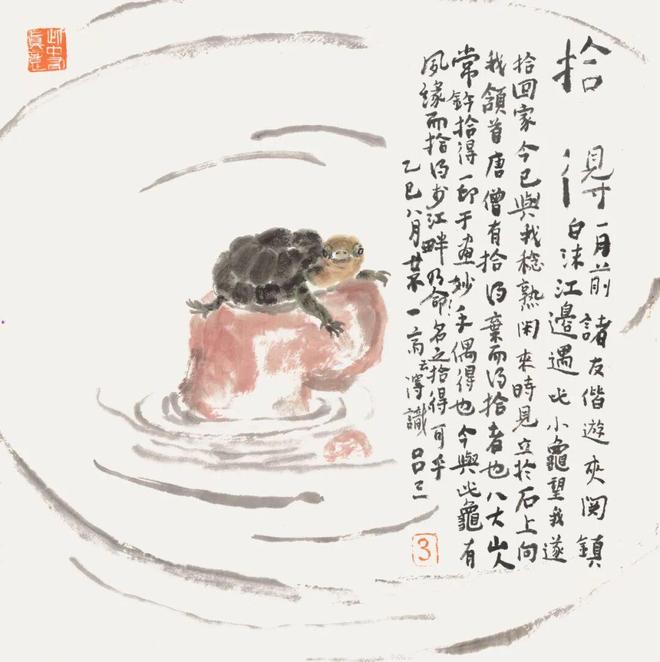 拾得
一月前諸友偕遊夾関鎮
白沫江邊遇此小龜望我遂
拾回家今已與我稔熟閑來時見立於石上向
我頷首唐僧有拾得棄而得拾者也八大山人
常鈐拾得一印于畫妙手偶得也今與此龜有
夙緣而拾得於江畔乃命名之拾得可乎
乙巳八月識呂三
3
此中有真意